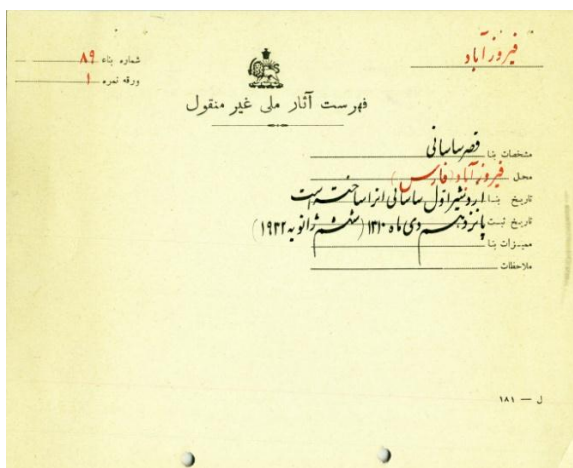 فیروزآباد
شماره بناء ۸۹
ورقه نمره ۱
فهرست آثار ملی غیر منقول
مشخصات بنا قصر ساسانی
محل فیروزآباد (فارس)
تاریخ بنا اردشیر اول ساسانی آنرا ساخته است
تاریخ ثبت پانزدهم دی ماه ۱۳۱۰ (ششم ژانویه ۱۹۳۲)
ممیزات بنا
ملاحظات
ل — ۱۸۱